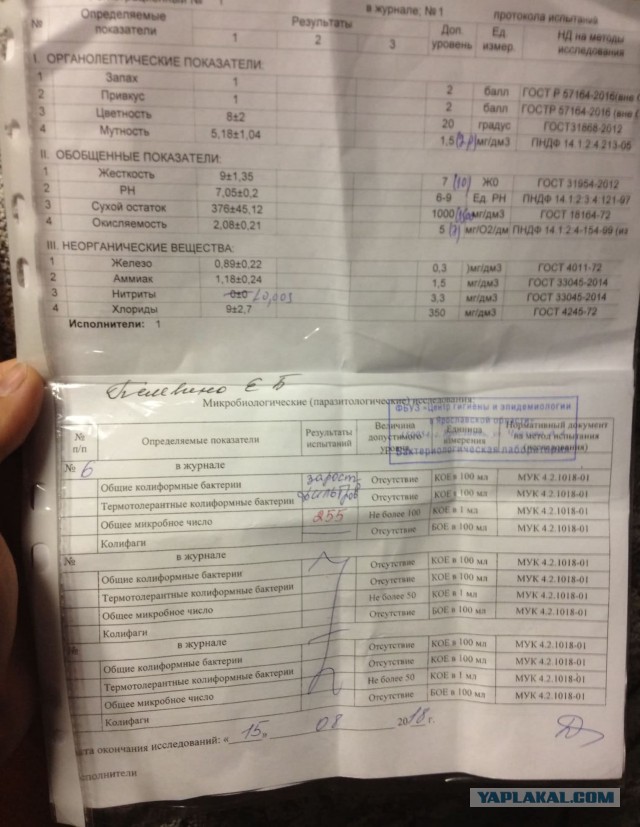 в журнале; № 1 протокола испытания
№ Определяемые показатели Результаты Доп. уровень Ед. измер. НД на методы исследования
1 2 3
I. ОРГАНОЛЕПТИЧЕСКИЕ ПОКАЗАТЕЛИ:
1 Запах 1 2 балл ГОСТ Р 57164-2016(вне
2 Привкус 1 2 балл ГОСТР 57164-2016 (вне
3 Цветность 8±2 20 градус ГОСТ31868-2012
4 Мутность 5,18±1,04 1,5 мг/дм3 ПНДФ 14.1:2:4.213-05
II. ОБОБЩЕННЫЕ ПОКАЗАТЕЛИ:
1 Жесткость 9±1,35 7 (10) Ж0 ГОСТ 31954-2012
2 РН 7,05±0,2 6-9 Ед. РН ПНДФ 14.1:2:3:4.121-97
3 Сухой остаток 376±45,12 1000 мг/дм3 ГОСТ 18164-72
4 Окисляемость 2,08±0,21 5 (7) мг/О2/дм ПНДФ 14.1:2:4-154-99 (из
III. НЕОРГАНИЧЕСКИЕ ВЕЩЕСТВА:
1 Железо 0,89±0,22 0,3 )мг/дм3 ГОСТ 4011-72
2 Аммиак 1,18±0,24 1,5 мг/дм3 ГОСТ 33045-2014
3 Нитриты 0±0 <0,003 3,3 мг/дм3 ГОСТ 33045-2014
4 Хлориды 9±2,7 350 мг/дм3 ГОСТ 4245-72
Исполнители: 1
Е Б
Микробиологические (паразитологические) исследования:
ФБУЗ «Центр гигиены и эпидемиологии
в Ярославской области»
Бактериологическая лаборатория
№ п/п Определяемые показатели Результаты испытаний Величина допустимого уровня Единица измерения Нормативный документ на метод испытания (исследования)
№ 6 в журнале
Общие колиформные бактерии зарост Отсутствие КОЕ в 100 мл МУК 4.2.1018-01
Термотолерантные колиформные бактерии фильтров Отсутствие КОЕ в 100 мл МУК 4.2.1018-01
Общее микробное число 255 Не более 100 КОЕ в 1 мл МУК 4.2.1018-01
Колифаги Отсутствие БОЕ в 100 мл МУК 4.2.1018-01
№ в журнале
Общие колиформные бактерии Отсутствие КОЕ в 100 мл МУК 4.2.1018-01
Термотолерантные колиформные бактерии Отсутствие КОЕ в 100 мл МУК 4.2.1018-01
Общее микробное число Не более 50 КОЕ в 1 мл МУК 4.2.1018-01
Колифаги Отсутствие БОЕ в 100 мл МУК 4.2.1018-01
№ в журнале
Общие колиформные бактерии Отсутствие КОЕ в 100 мл МУК 4.2.1018-01
Термотолерантные колиформные бактерии Отсутствие КОЕ в 100 мл МУК 4.2.1018-01
Общее микробное число Не более 50 КОЕ в 1 мл МУК 4.2.1018-01
Колифаги Отсутствие БОЕ в 100 мл МУК 4.2.1018-01
ата окончания исследований: «15» 08 2018 г.
сполнители
YAPLAKAL.COM